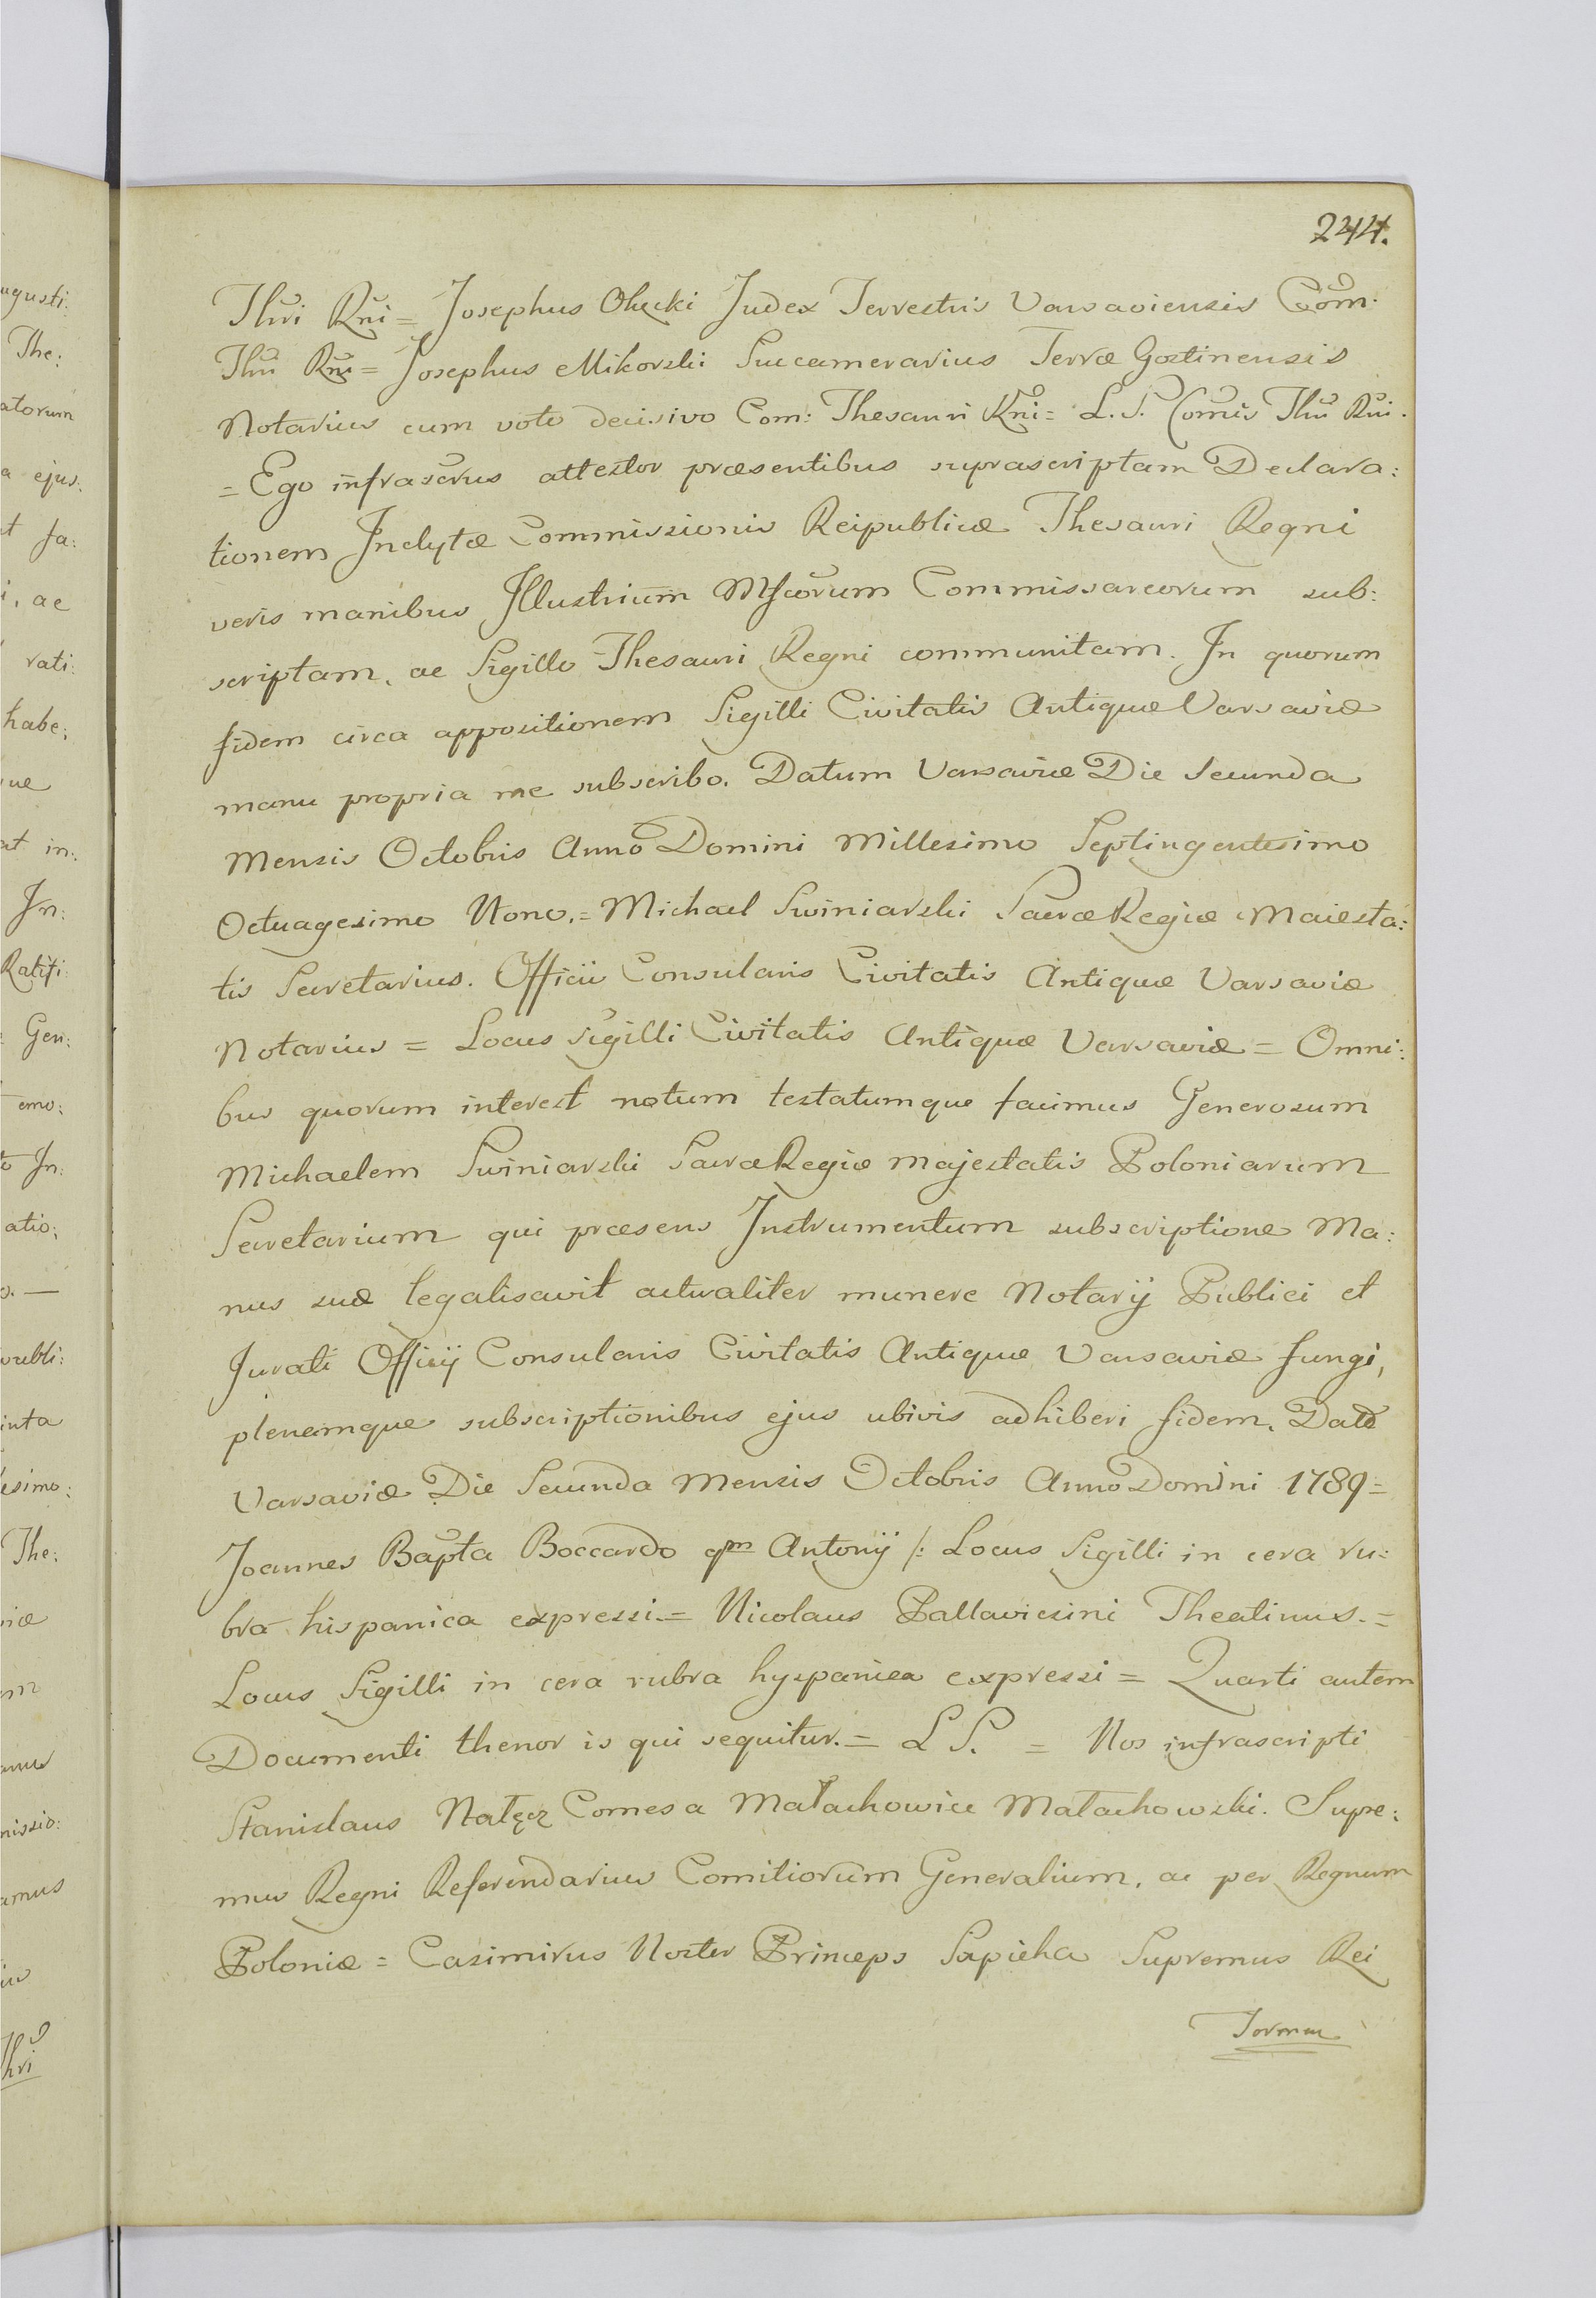 244.
Thri Rni = Josephus Olęcki Judex Terrestris Varsaviensis Com.
Thri Rni = Josephus Mikorski Succamerarius Terræ Gostinensis
Notarius cum voto decisivo Com: Thesauri Rni = L. S. Comis Thri Rni.
= Ego infrascrus attestor præsentibus suprascriptam Declara:
tionem Inclytæ Commissionis Reipublicæ Thesauri Regni
veris manibus Illustrium Mfcorum Commissareorum sub:
scriptam, ac Sigillo Thesauri Regni communitam. In quorum
fidem circa appositionem Sigilli Civitatis Antiquæ Varsaviæ
manu propria me subscribo. Datum Varsaviæ Die Secunda
Mensis Octobris Anno Domini Millesimo Septingentesimo
Octuagesimo Nono. = Michael Swiniarski Sacræ Regiæ Maiesta:
tis Secretarius. Officii Consularis Civitatis Antiquæ Varsaviæ
Notarius = Locus Sigilli Civitatis Antiquæ Varsaviæ = Omni:
bus quorum interest notum testatumque facimus Generosum
Michaelem Swiniarski Sacræ Regiæ Majestatis Poloniarum
Secretarium qui præsens Instrumentum subscriptione Ma:
nus suæ legalisavit actualiter munere Notarij Publici et
Jurati Officij Consularis Civitatis Antiquæ Varsaviæ fungi,
plenamque subscriptionibus ejus ubivis adhiberi fidem. Datæ
Varsaviæ Die Secunda Mensis Octobris Anno Domini 1789 =
Joannes Bapta Boccardo qm Antonij /: Locus Sigilli in cera ru:
bra hispanica expressi = Nicolaus Pallavicini Theatinus. =
Locus Sigilli in cera rubra hyspanica expressi = Quarti autem
Documenti thenor is qui sequitur. = L S. = Nos infrascripti
Stanislaus Nałęcz Comes a Małachowice Małachowski. Supre:
mus Regni Referendarius Comitiorum Generalium, ac per Regnum
Poloniæ = Casimirus Noster Princeps Sapieha Supremus Rei